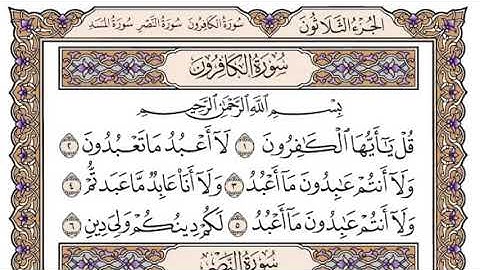 الجزء الثلاثون سورة الكافرون سورة النصر سورة المسد
سورة الكافرون
بِسْمِ اللَّهِ الرَّحْمَٰنِ الرَّحِيمِ
قُلْ يَا أَيُّهَا الْكَافِرُونَ ١ لَا أَعْبُدُ مَا تَعْبُدُونَ ٢
وَلَا أَنتُمْ عَابِدُونَ مَا أَعْبُدُ ٣ وَلَا أَنَا عَابِدٌ مَّا عَبَدتُّمْ ٤
وَلَا أَنتُمْ عَابِدُونَ مَا أَعْبُدُ ٥ لَكُمْ دِينُكُمْ وَلِيَ دِينِ ٦
سورة النصر